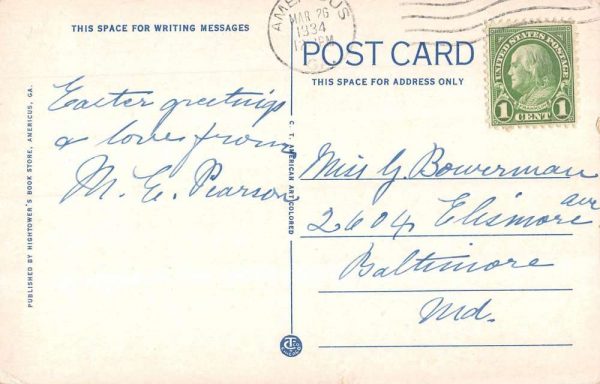 THIS SPACE FOR WRITING MESSAGES
Easter greetings
& love from
M. E. Pearson
PUBLISHED BY HIGHTOWER'S BOOK STORE, AMERICUS, GA.
C. T. AMERICAN ART COLORED
AMERICUS
MAR 26
1934
POST CARD
THIS SPACE FOR ADDRESS ONLY
UNITED STATES POSTAGE
FRANKLIN
1 CENT 1
Miss G. Bowerman
2604 Elismore
Baltimore
Md.